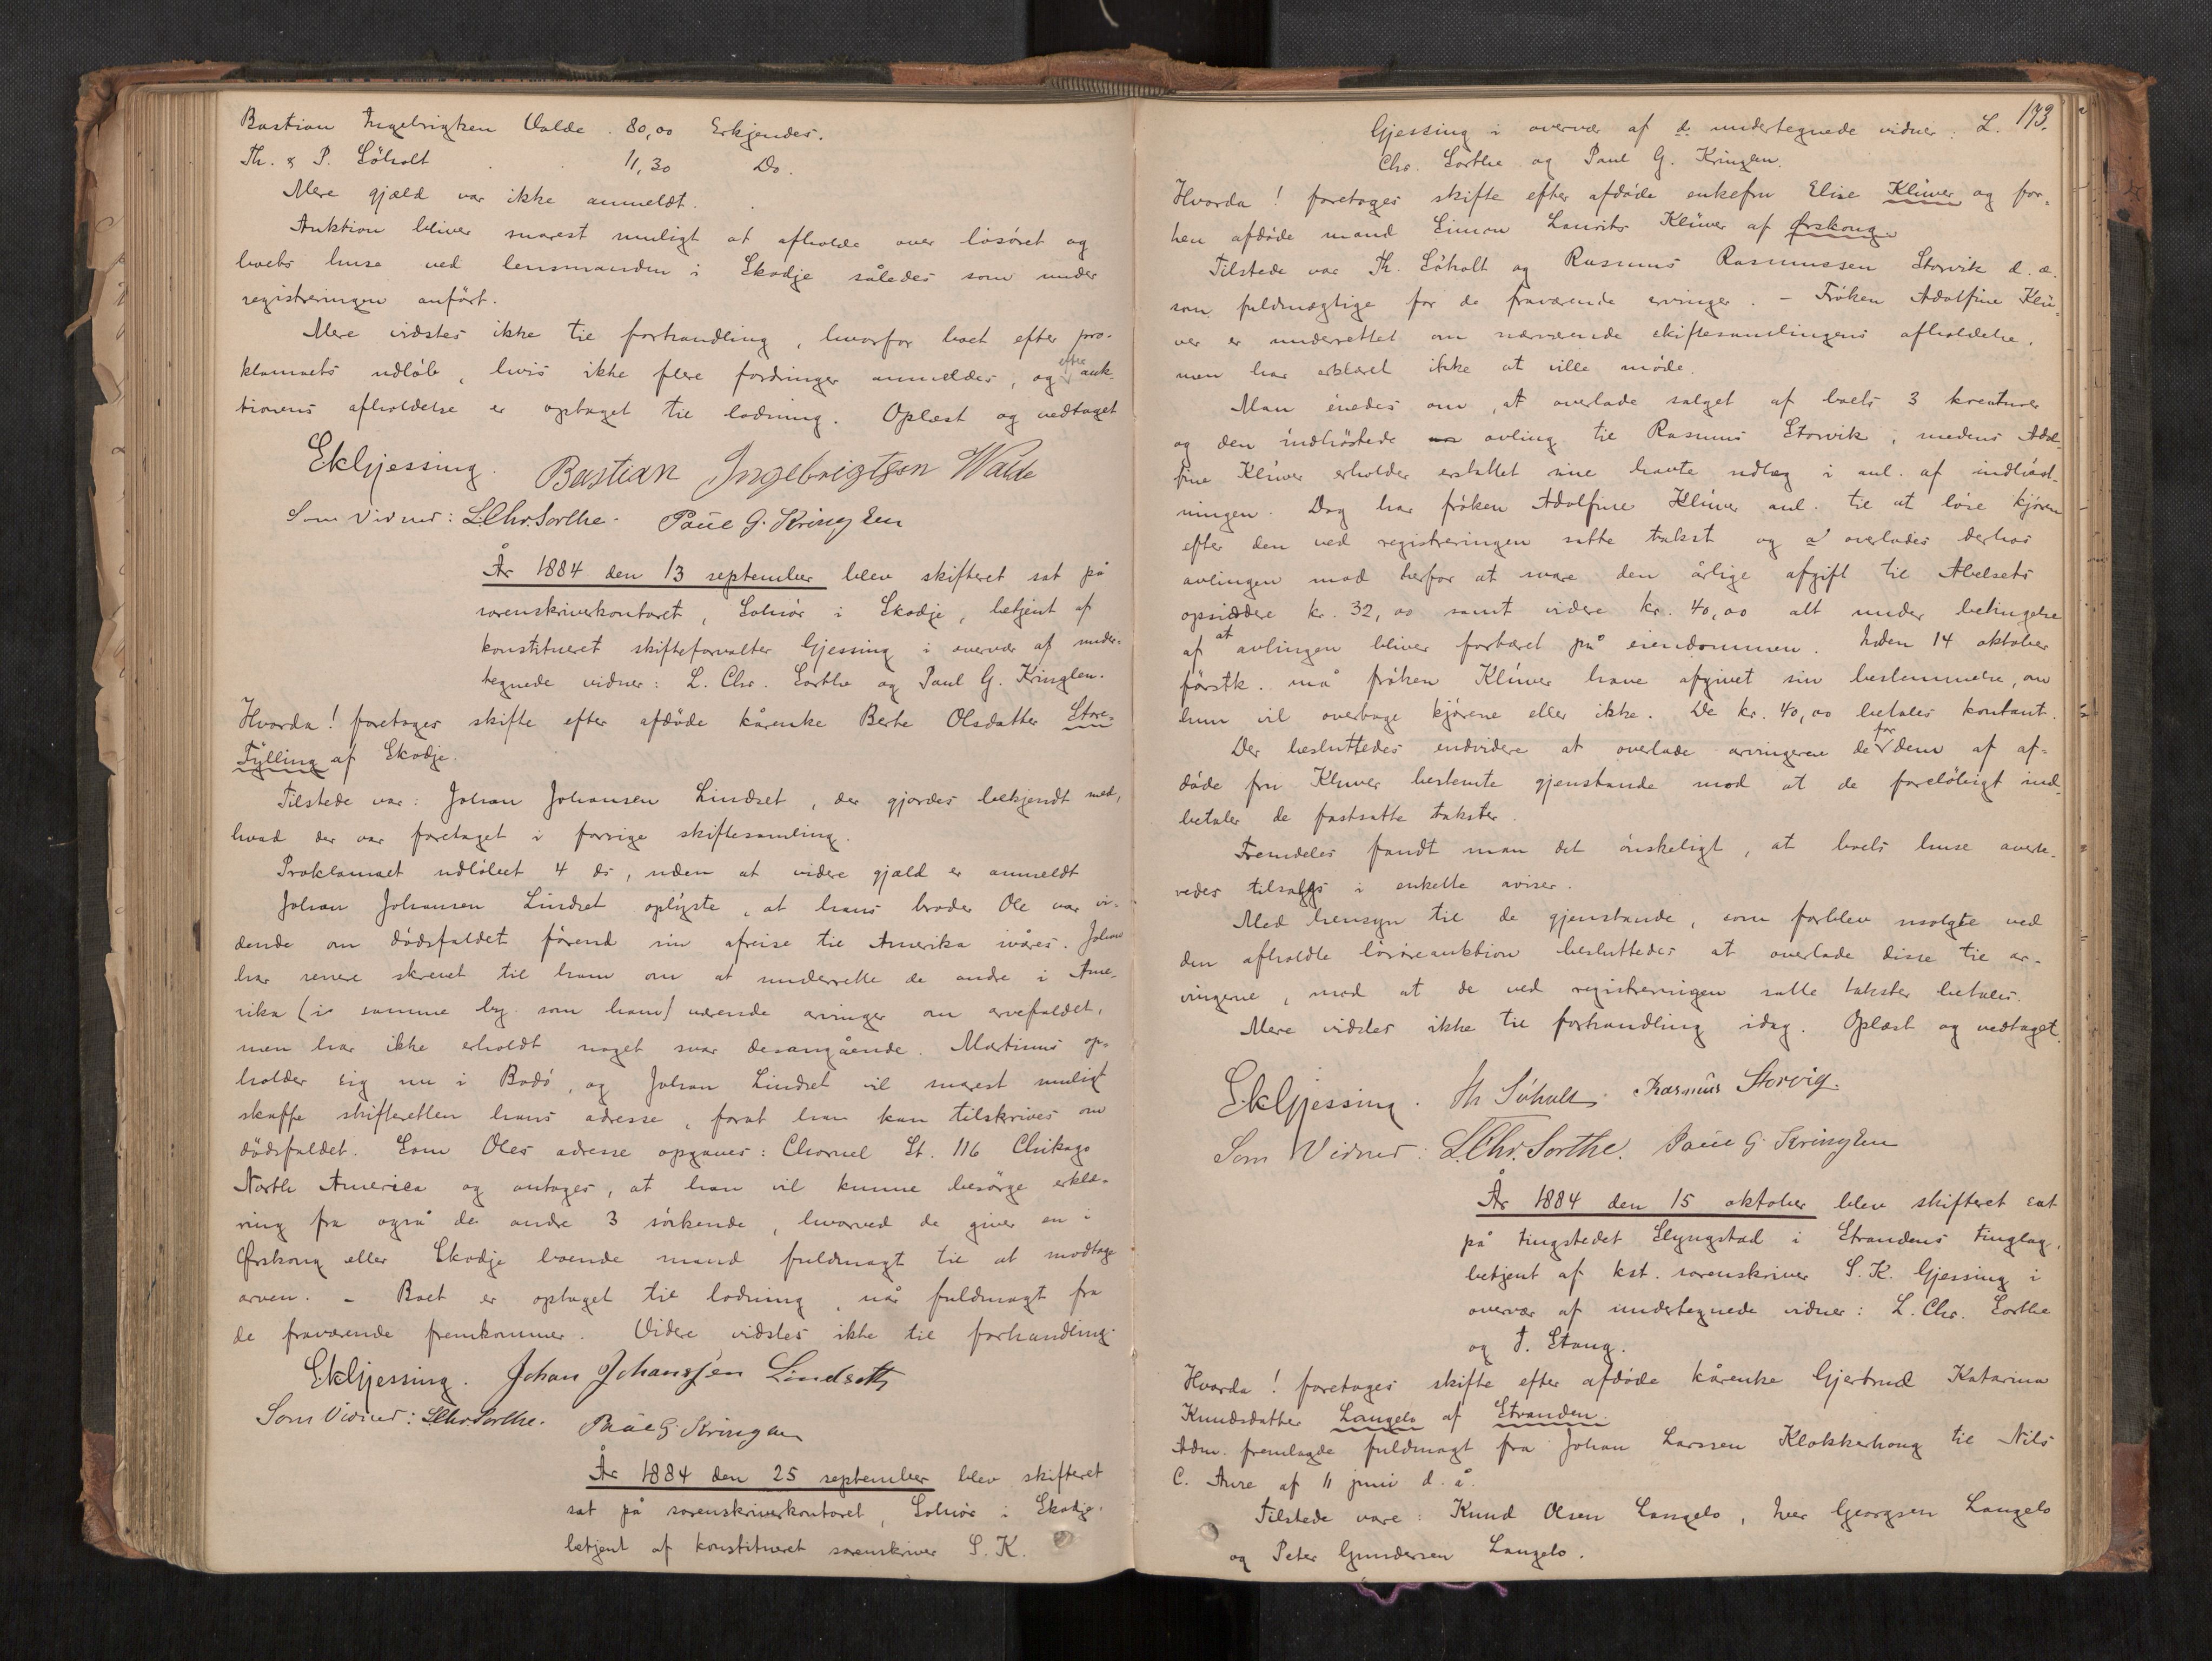 Bastian Ingebrigtsen Valde . 80,00 Erkjendes.
Th. & P. Söholt . . 11,30 Do.
Mere gjæld var ikke anmeldt.
Auktion bliver snarest muligt at afholde over lösöret og
boets huse ved lensmanden i Skodje således som under
registreringen anfört.
Mere vidstes ikke til forhandling, hvorfor boet efter pro-
klamaets udlöb, hvis ikke flere fordringer anmeldes, og efter auk-
tionens afholdelse er optaget til lodning. Oplæst og vedtaget
SKGjessing. Bastian Ingebrigtsen Walde
Som Vidner: L.Chr.Sorthe. Paul G. Kringlen
År 1884 den 13 september blev skifteret sat på
sorenskriverkontoret, Solnör i Skodje, betjent af
konstitueret skifteforvalter Gjessing i overvær af under-
tegnede vidner: L. Chr. Sorthe og Paul G. Kringlen.
Hvorda! foretages skifte efter afdöde kårenke Berte Olsdatter Store-
Fylling af Skodje.
Tilstede var: Johan Johansen Lindset, der gjordes bekjendt med,
hvad der var foretaget i forrige skiftesamling.
Proklamaet udlöbet 4 ds, uden at videre gjæld er anmeldt
Johan Johansen Lindset oplyste, at hans broder Ole var vi-
dende om dödsfaldet förend sin afreise til Amerika ivåres. Johan
har senere skrevet til ham om at underrette de andre i Ame-
rika (i samme by som ham) værende arvinger om arvefaldet,
men har ikke erholdt noget svar desangående. Martinus op-
holder sig nu i Bodö, og Johan Lindset vil snarest muligt
skaffe skifteretten hans adresse, forat han kan tilskrives om
dödsfaldet. Som Oles adresse opgaves: Chornel St. 116 Chikago
North America og antages, at han vil kunne besörge erklæ-
ring fra også de andre 3 söskende, hvorved de giver en i
Ørskoug eller Skodje boende mand fuldmagt til at modtage
arven. – Boet er optaget til lodning, når fuldmagt fra
de fraværende fremkommer. Videre vidstes ikke til forhandling.
SKGjessing. Johan Johanssen Lindseth
Som Vidner: L.Chr.Sorthe. Paul G. Kringlen
År 1884 den 25 september blev skifteret
sat på sorenskriverkontoret, Solnör i Skodje.
betjent af konstitueret sorenskriver S. K.
173.
Gjessing i overvær af d. undertegnede vidner: L.
Chr. Sorthe og Paul G. Kringlen.
Hvorda! foretages skifte efter afdöde enkefru Elise Klüwer og for-
hen afdöde mand Simon Laurits Klüwer af Ørskoug.
Tilstede var Th. Söholt og Rasmus Rasmussen Storvik d. æ.
som fuldmægtige for de fraværende arvinger. – Fröken Adolfine Klü-
wer er underrettet om nærværende skiftesamlingens afholdelse.
men har erklæret ikke at ville møde.
Man enedes om, at overlade salget af boets 3 kreaturer
og den indhöstede avling til Rasmus Storvik, medens Adol-
fine Klüwer erholder erstattet sine havte udlæg i anl. af indhöst-
ningen. Dog har fröken Adolfine Klüwer anl. til at löse kjören
efter den ved registreringen satte takst og overlades derhos
avlingen mod herfor at svare den årlige afgift til Abelsets
opsiddere kr. 32,00 samt videre kr. 40,00 alt under betingelse
af at avlingen bliver fortæret på eiendommen. Inden 14 oktober
förstk. må fröken Klüwer have afgivet sin bestemmelse, om
hun vil overtage kjörene eller ikke. De kr. 40,00 betales kontant.
Der besluttedes endvidere at overlade arvingerne de for dem af af-
döde fru Kluwer bestemte gjenstande mod at de foreløbigt ind-
betaler de fastsatte takster.
Fremdeles fandt man det önskeligt, at boets huse averte-
redes tilsalgs i enkelte aviser.
Med hensyn til de gjenstande, som forblev usolgte ved
den afholdte lösöreauktion besluttedes at overlade disse til ar-
vingerne, mod at de ved registreringen satte takster betales.
Mere vidstes ikke til forhandling idag. Oplæst og vedtaget.
SKGjessing. Th Söholt. Rasmus Storvig.
Som Vidner: L.Chr. Sorthe. Paul G. Kringlen
År 1884 den 15 oktober blev skifteret sat
på tingstedet Slyngstad i Strandens tinglag,
betjent af kst. sorenskriver S. K. Gjessing i
overvær af undertegnede vidner: L. Chr. Sorthe
og T. Stang.
Hvorda! foretages skifte efter afdöde kårenke Gjertrud Katarina
Knudsdatter Langelo af Stranden.
Adm. fremlagde fuldmagt fra Johan Larssen Klokkerhoug til Nils
C. Aure af 11 juni d. å.
Tilstede vare: Knud Olsen Langelo, Iver Georgsen Langelo
og Peter Gundersen Langelo.